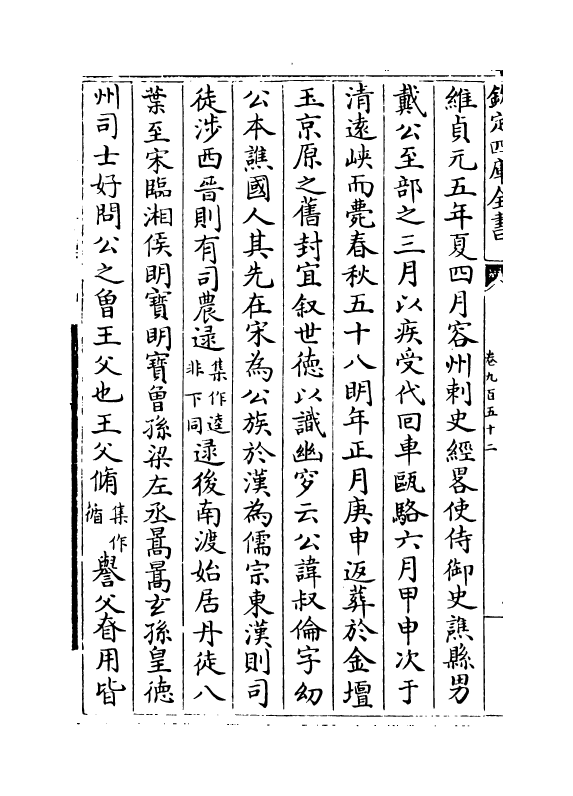 欽定四庫全書
卷九百五十二
維貞元五年夏四月容州刺史經畧使侍御史譙縣男
戴公至部之三月以疾受代回車甌駱六月甲申次于
清遠峽而薨春秋五十八明年正月庚申返葬於金壇
玉京原之舊封宜叙世徳以識幽穸云公諱叔倫字幼
公本譙國人其先在宋為公族於漢為儒宗東漢則司
徒涉西晉則有司農逯集作逵非下同逯後南渡始居丹徒八
葉至宋臨湘侯明寶明寶曾孫梁左丞暠暠玄孫皇徳
州司士好問公之曾王父也王父脩集作循譽父昚用皆